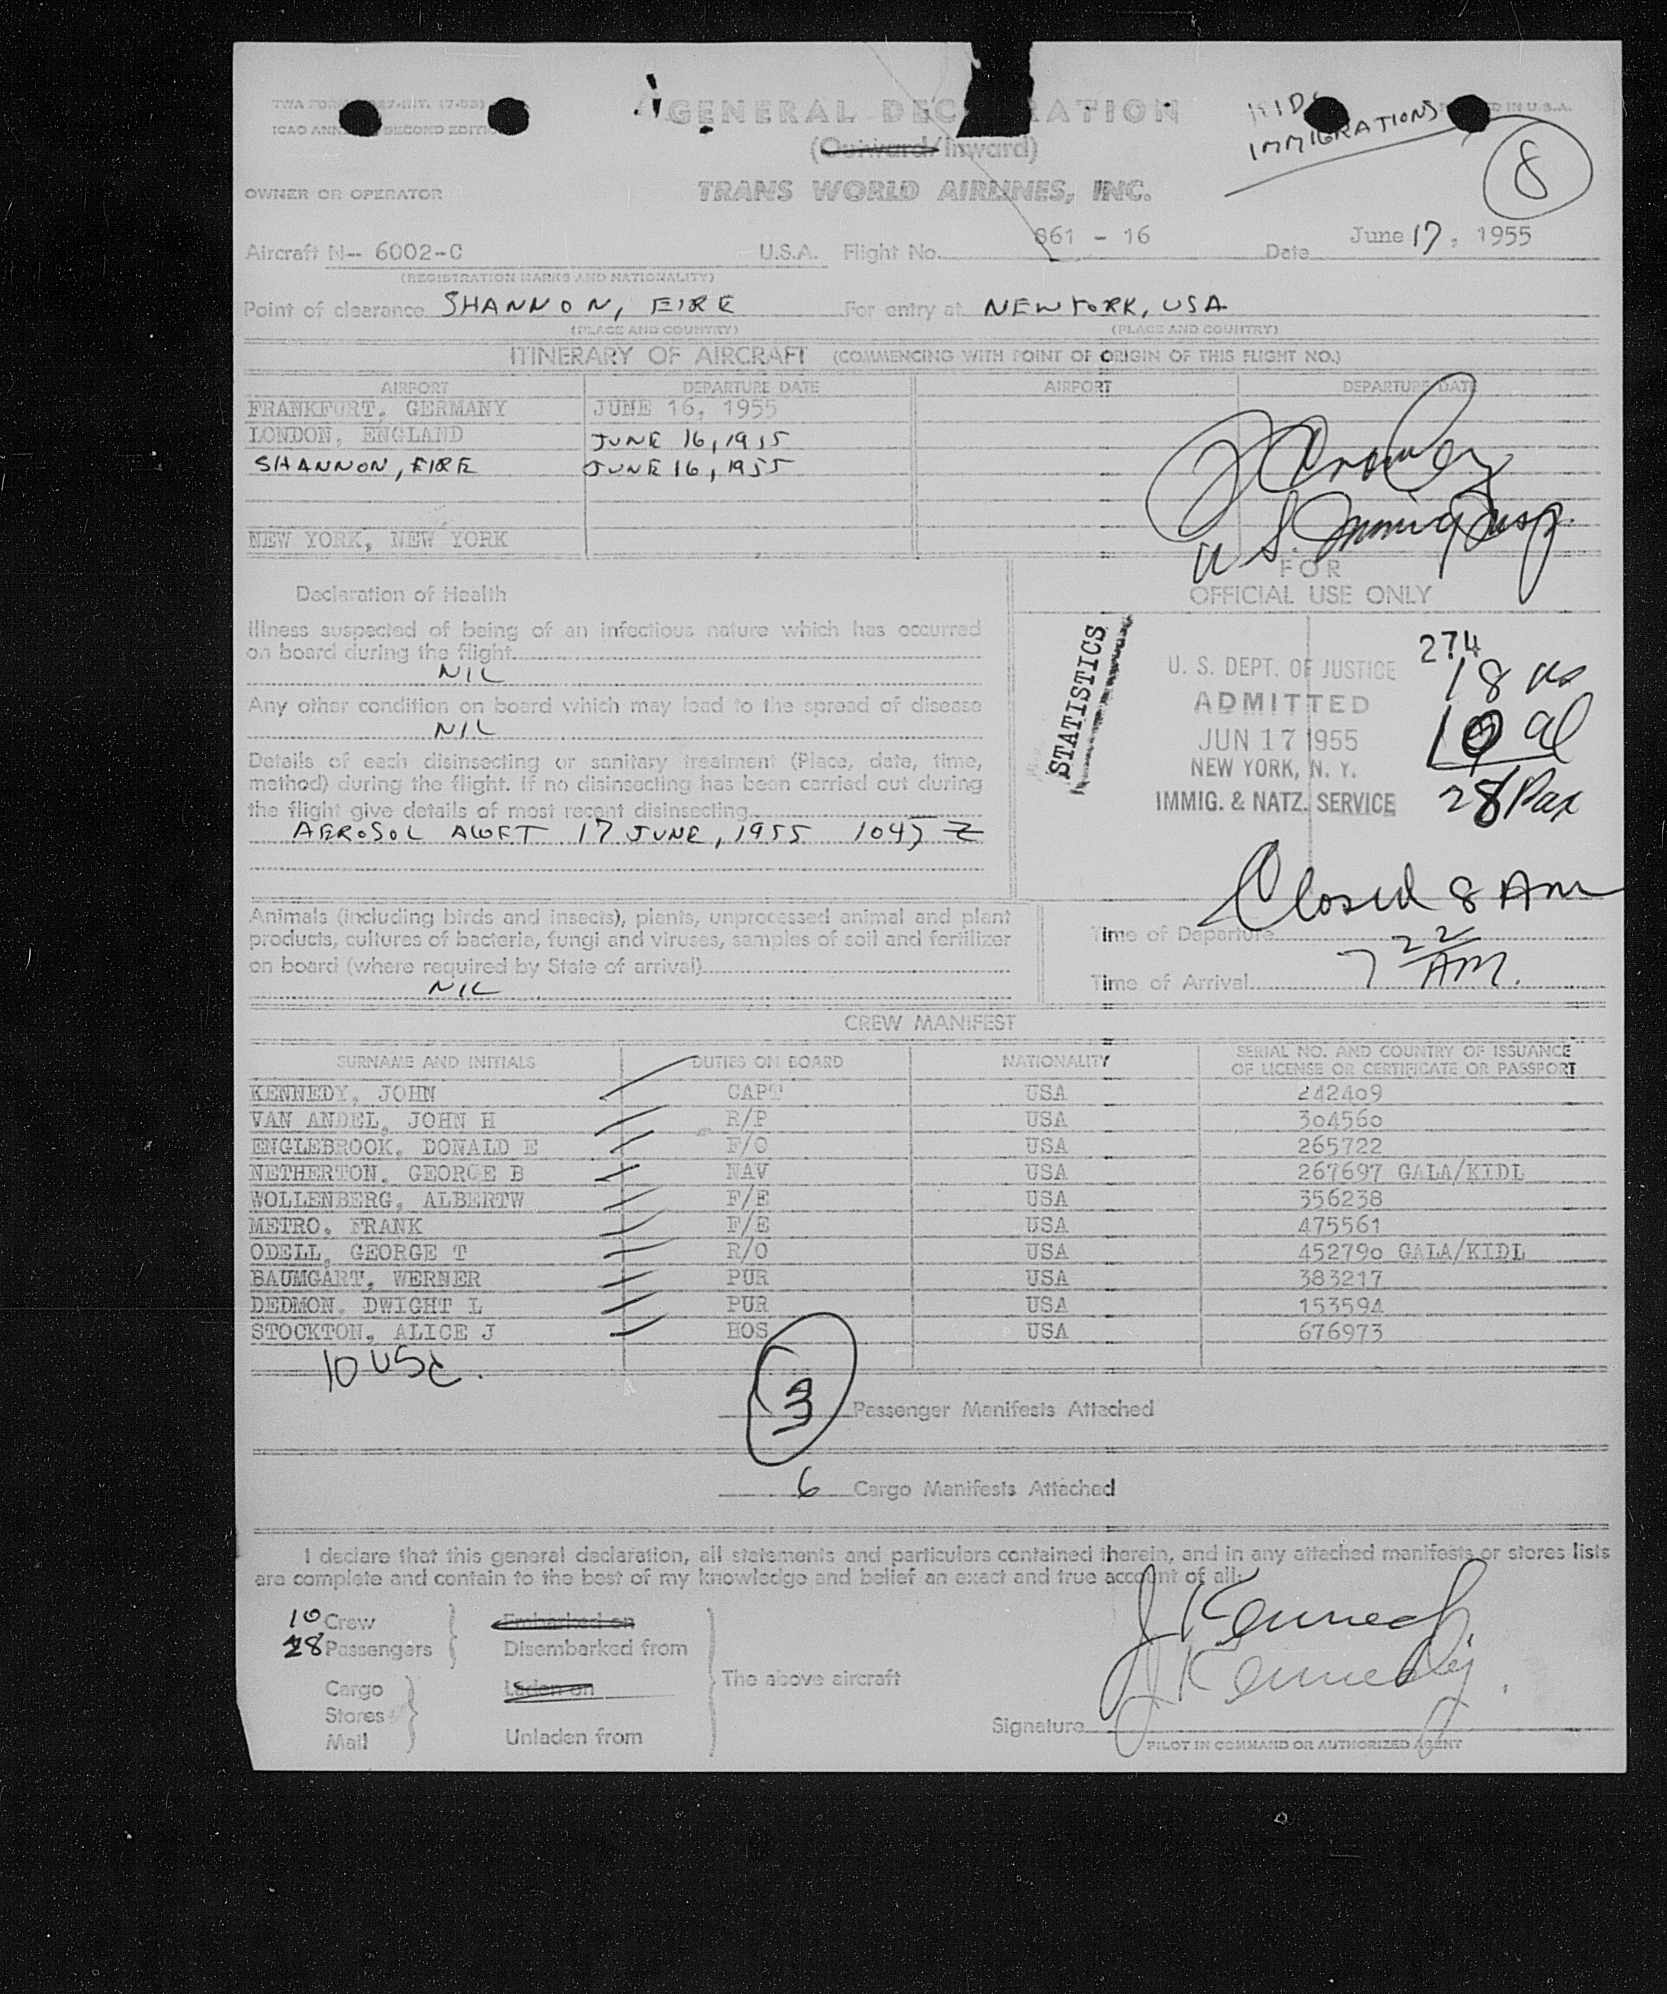 GENERAL DECLARATION
(Outward/Inward)
IMMIGRATIONS
8
OWNER OR OPERATOR
TRANS WORLD AIRLINES, INC.
Aircraft N-- 6002-C U.S.A. Flight No. 861 - 16 Date June 17, 1955
(REGISTRATION MARKS AND NATIONALITY)
Point of clearance SHANNON, EIRE For entry at NEW YORK, USA
(PLACE AND COUNTRY) (PLACE AND COUNTRY)
ITINERARY OF AIRCRAFT (COMMENCING WITH POINT OF ORIGIN OF THIS FLIGHT NO.)
AIRPORT DEPARTURE DATE AIRPORT DEPARTURE DATE
FRANKFURT, GERMANY JUNE 16, 1955
LONDON, ENGLAND JUNE 16, 1955
SHANNON, EIRE JUNE 16, 1955
NEW YORK, NEW YORK
U S. Immig Insp.
Declaration of Health
FOR
OFFICIAL USE ONLY
Illness suspected of being of an infectious nature which has occurred
on board during the flight
NIL
Any other condition on board which may lead to the spread of disease
NIL
Details of each disinsecting or sanitary treatment (Place, date, time,
method) during the flight. If no disinsecting has been carried out during
the flight give details of most recent disinsecting
AEROSOL 17 JUNE, 1955 1045 Z
STATISTICS
U. S. DEPT. OF JUSTICE
ADMITTED
JUN 17 1955
NEW YORK, N. Y.
IMMIG. & NATZ. SERVICE
274
18 us
10 al
28 Pax
Closed 8 AM
Animals (including birds and insects), plants, unprocessed animal and plant
products, cultures of bacteria, fungi and viruses, samples of soil and fertilizer
on board (where required by State of arrival)
NIL
Time of Departure
Time of Arrival 7 22 AM.
CREW MANIFEST
SURNAME AND INITIALS DUTIES ON BOARD NATIONALITY SERIAL NO. AND COUNTRY OF ISSUANCE
OF LICENSE OR CERTIFICATE OR PASSPORT
KENNEDY, JOHN CAPT USA 242409
VAN ANDEL, JOHN H R/P USA 304560
ENGLEBROOK, DONALD E F/O USA 265722
NETHERTON, GEORGE B NAV USA 267697 GALA/KIDL
WOLLENBERG, ALBERTW F/E USA 356238
METRO, FRANK F/E USA 475561
ODELL, GEORGE T R/O USA 452790 GALA/KIDL
BAUMGART, WERNER PUR USA 383217
DEDMON, DWIGHT L PUR USA 153594
STOCKTON, ALICE J HOS USA 676973
10 USC.
3 Passenger Manifests Attached
6 Cargo Manifests Attached
I declare that this general declaration, all statements and particulars contained therein, and in any attached manifests or stores lists
are complete and contain to the best of my knowledge and belief an exact and true account of all:
10 Crew Embarked on
28 Passengers Disembarked from
Cargo Laden on
Stores
Mail Unladen from
The above aircraft
J Kennedy
J Kennedy
Signature
PILOT IN COMMAND OR AUTHORIZED AGENT